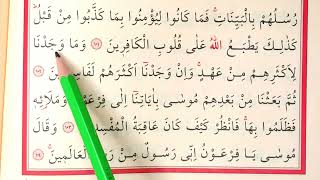 رُسُلُهُمْ بِالْبَيِّنَاتِ فَمَا كَانُوا لِيُؤْمِنُوا بِمَا كَذَّبُوا مِنْ قَبْلُ
كَذٰلِكَ يَطْبَعُ اللّٰهُ عَلٰى قُلُوبِ الْكَافِرِينَ ﴿١٠١﴾ وَمَا وَجَدْنَا
لِاَكْثَرِهِمْ مِنْ عَهْدٍ وَاِنْ وَجَدْنَا اَكْثَرَهُمْ لَفَاسِقِينَ
ثُمَّ بَعَثْنَا مِنْ بَعْدِهِمْ مُوسٰى بِاٰيَاتِنَا اِلٰى فِرْعَوْنَ وَمَلَائِهِ
فَظَلَمُوا بِهَا فَانْظُرْ كَيْفَ كَانَ عَاقِبَةُ الْمُفْسِدِينَ ﴿١٠٣﴾ وَقَالَ
مُوسٰى يَا فِرْعَوْنُ اِنِّى رَسُولٌ مِنْ رَبِّ الْعَالَمِينَ ﴿١٠٤﴾